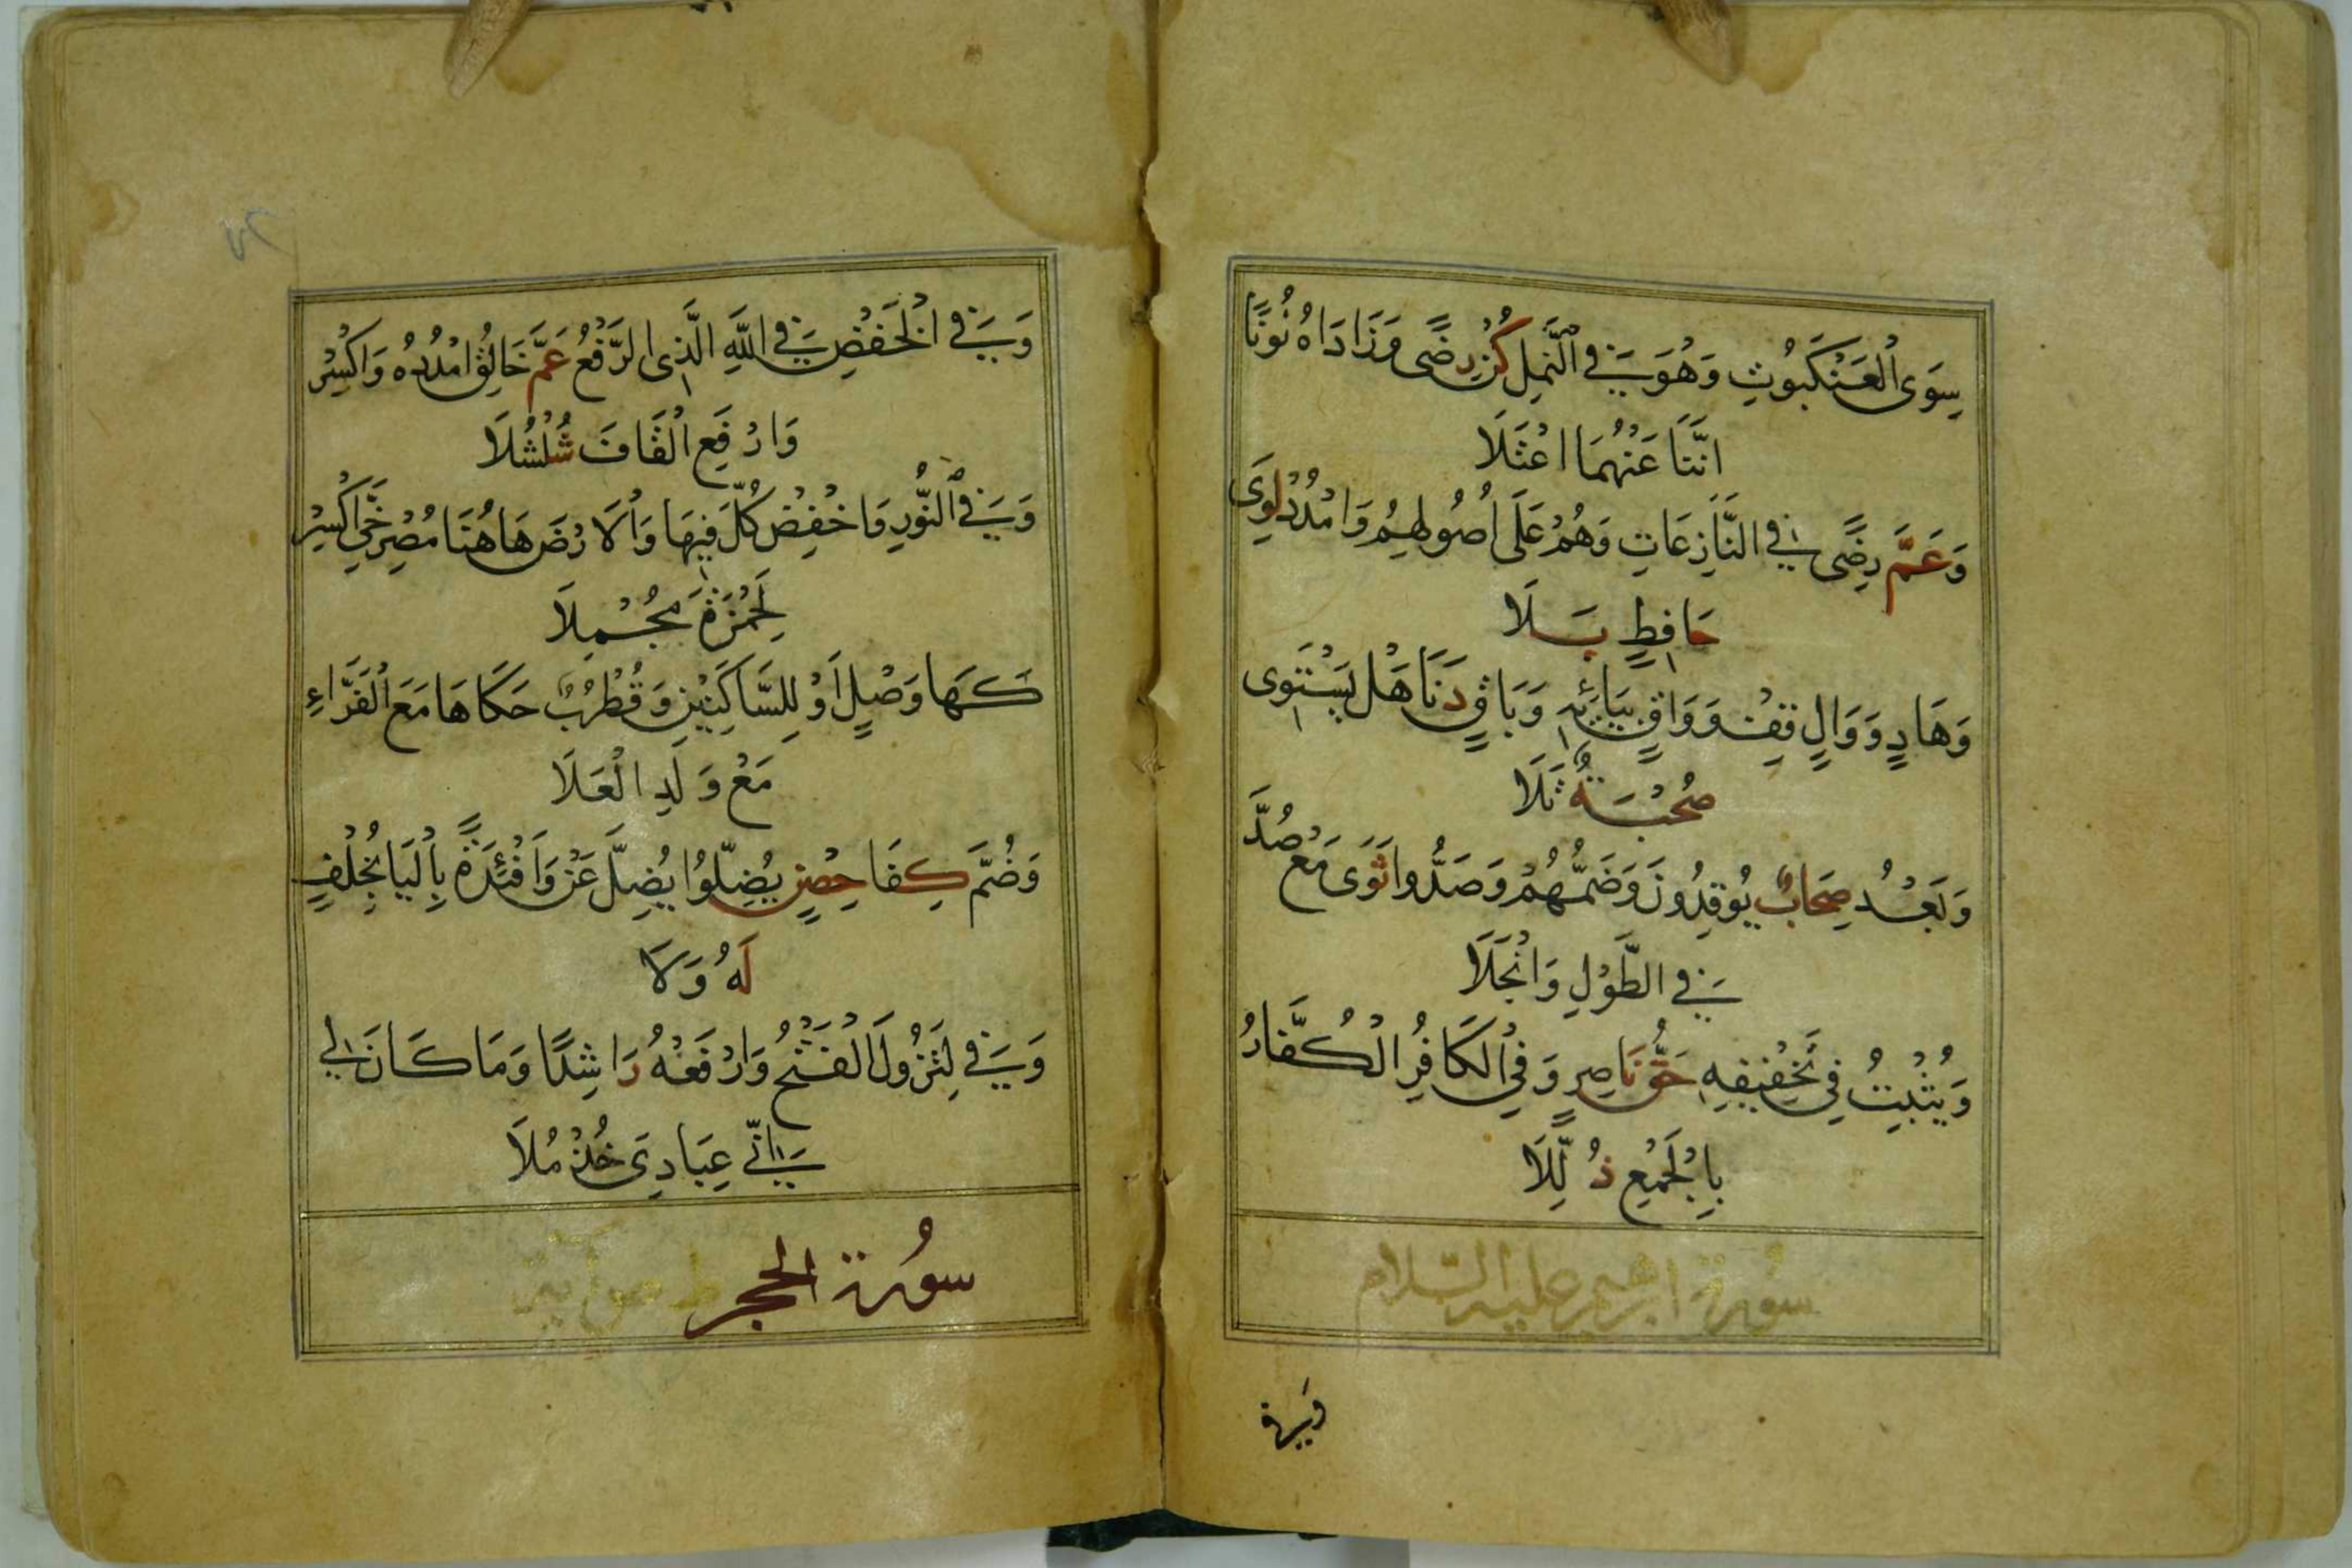 سِوَى الْعَنْكَبُوتِ وَهُوَ فِي النَّمْلِ كُنْ رِضًى وَزَادَاهُ نُونًا
اِنَّنَا عَنْهُمَا اعْتَلَا
وَعَمَّ رِضًى فِي النَّازِعَاتِ وَهُمْ عَلَى أُصُولِهِمْ وَامْدُدْ لِوَى
حَافِظٍ بَلَا
وَهَادٍ وَوَالٍ قِفْ وَوَاقٍ بِيَائِهِ وَبَاقٍ دَنَا هَلْ يَسْتَوِى
صُحْبَةٌ تَلَا
وَبَعْدُ صِحَابٌ يُوقِدُونَ وَضَمُّهُمْ وَصَدُّوا ثَوَى مَعْ صُدَّ
فِي الطَّوْلِ وَانْجَلَا
وَيُثْبِتُ فِي تَخْفِيفِهِ حَقُّ نَاصِرٍ وَفِي الْكَافِرُ الْكُفَّارُ
بِالْجَمْعِ ذُلِّلَا
سُورة ابرهيم عليه السّلام
وَفِي الْخَفْضِ فِي اللَّهِ الَّذِى الرَّفْعُ عَمَّ خَالِقُ امْدُدْهُ وَاكْسِرْ
وَارْفَعِ الْقَافَ شُلْشُلَا
وَفِي النُّورِ وَاخْفِضْ كُلَّ فِيهَا وَالْارْضَ هَاهُنَا مُصْرِخِيَّ اكْسِرْ
لِحَمْزَةَ مُجْمِلَا
كَهَا وَصْلٍ اَوْ لِلسَّاكِنَيْنِ وَقُطْرُبٌ حَكَاهَا مَعَ الْفَرَّاءِ
مَعْ وَلَدِ الْعَلَا
وَضُمَّ كِفَا حِصْنٍ يُضِلُّوا يُضِلَّ عَنْ وَاَفْئِدَةً بِالْيَا بِخُلْفٍ
لَهُ وَلَا
وَفِي لِتَزُولَ الْفَتْحُ وَارْفَعْهُ رَاشِدًا وَمَا كَانَ لِي
اِنِّي عِبَادِىَ خُذْ مُلَا
سُورة الحجر